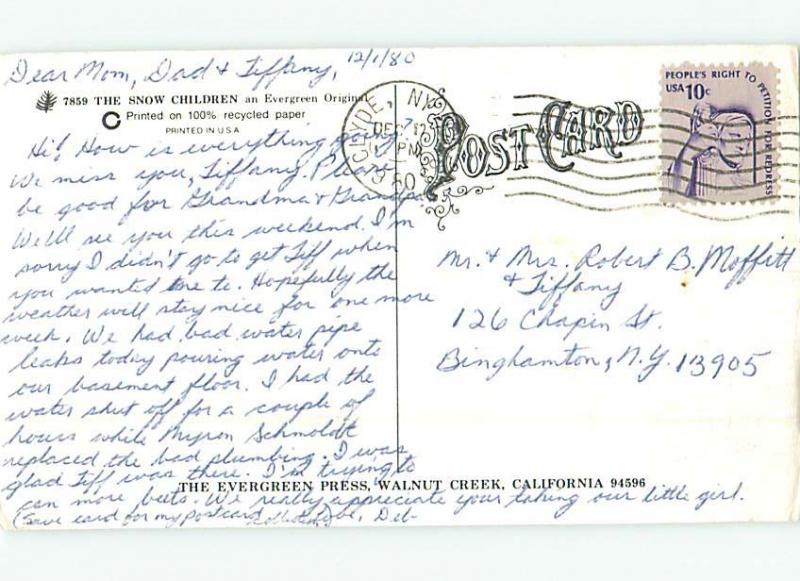 12/1/80
Dear Mom, Dad & Tiffany,
7859 THE SNOW CHILDREN an Evergreen Original
Printed on 100% recycled paper
PRINTED IN U.S.A.
Hi! How is everything going?
We miss you, Tiffany. Please
be good for Grandma & Grandpa.
We'll see you this weekend. I'm
sorry I didn't go to get Tiff when
you wanted me to. Hopefully the
weather will stay nice for one more
week. We had bad water pipe
leaks today pouring water onto
our basement floor. I had the
water shut off for a couple of
hours while Myron Schmoldt
replaced the bad plumbing. I was
glad Tiff was there. I'm trying to
can more beets. We really appreciate your taking our little girl.
(Save card for my postcard collection) Love, Deb
THE EVERGREEN PRESS, WALNUT CREEK, CALIFORNIA 94596
CLYDE, NY
DEC 2
PM
1980
POST CARD
PEOPLE'S RIGHT TO PETITION FOR REDRESS
USA 10c
Mr. & Mrs. Robert B. Moffitt
& Tiffany
126 Chapin St.
Binghamton, N.Y. 13905